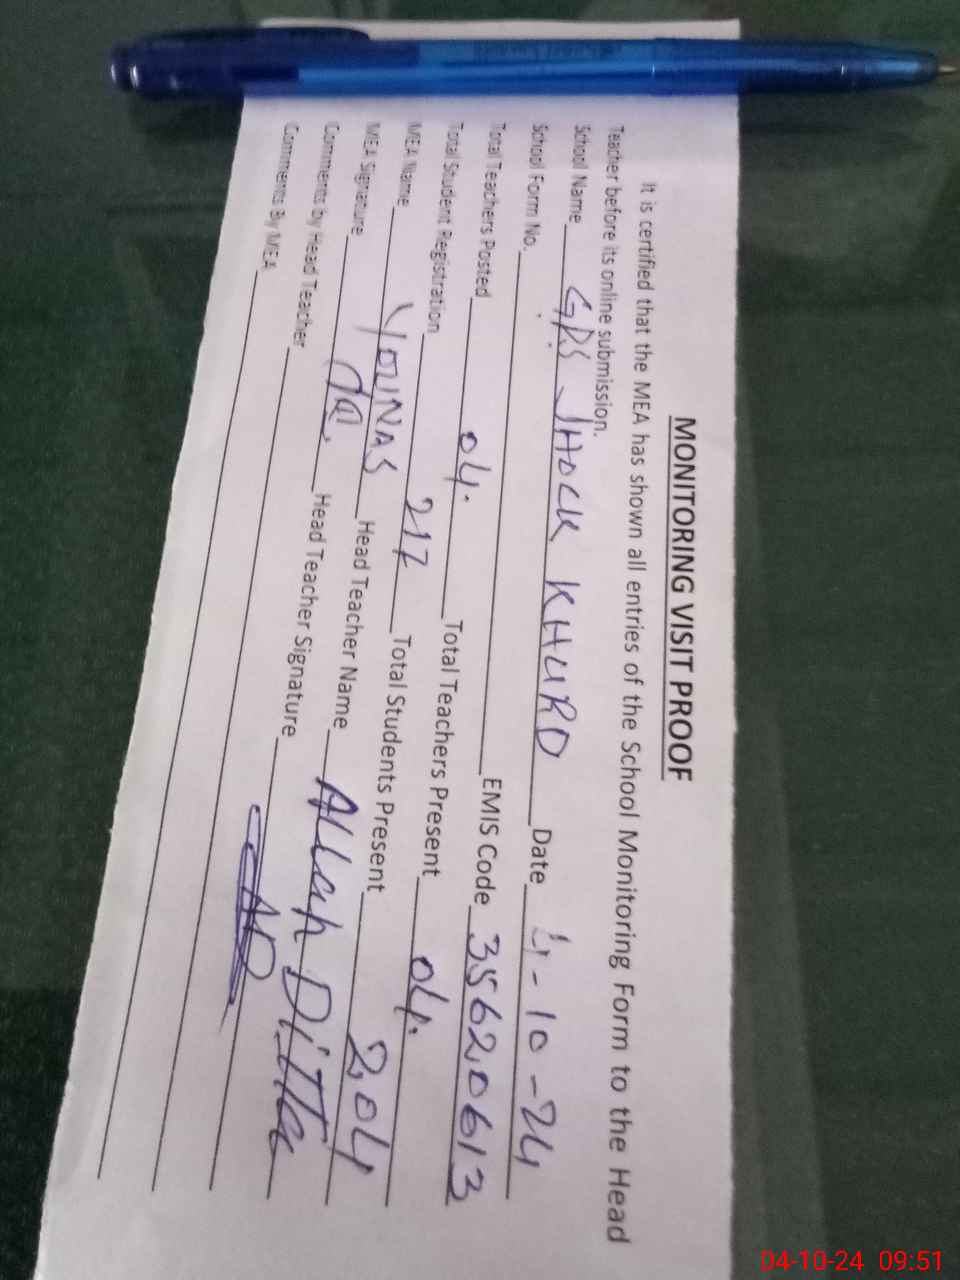 MONITORING VISIT PROOF
It is certified that the MEA has shown all entries of the School Monitoring Form to the Head
Teacher before its online submission.
School Name GPS JHOCK KHURD Date 4-10-24
School Form No. EMIS Code 35620613
Total Teachers Posted 04. Total Teachers Present 04.
Total Student Registration 217 Total Students Present 204
MEA Name YOUNAS Head Teacher Name Allah Ditta
MEA Signature Head Teacher Signature
Comments by Head Teacher
Comments By MEA
04-10-24 09:51